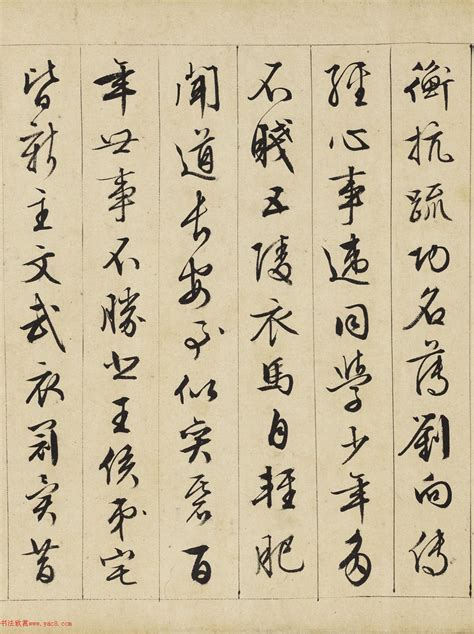 衡抗疏功名薄劉向傳
經心事違同學少年多
不賤五陵衣馬自輕肥
聞道長安似奕碁百
年世事不勝悲王侯第宅
皆新主文武衣冠異昔
书法欣赏www.yac8.com